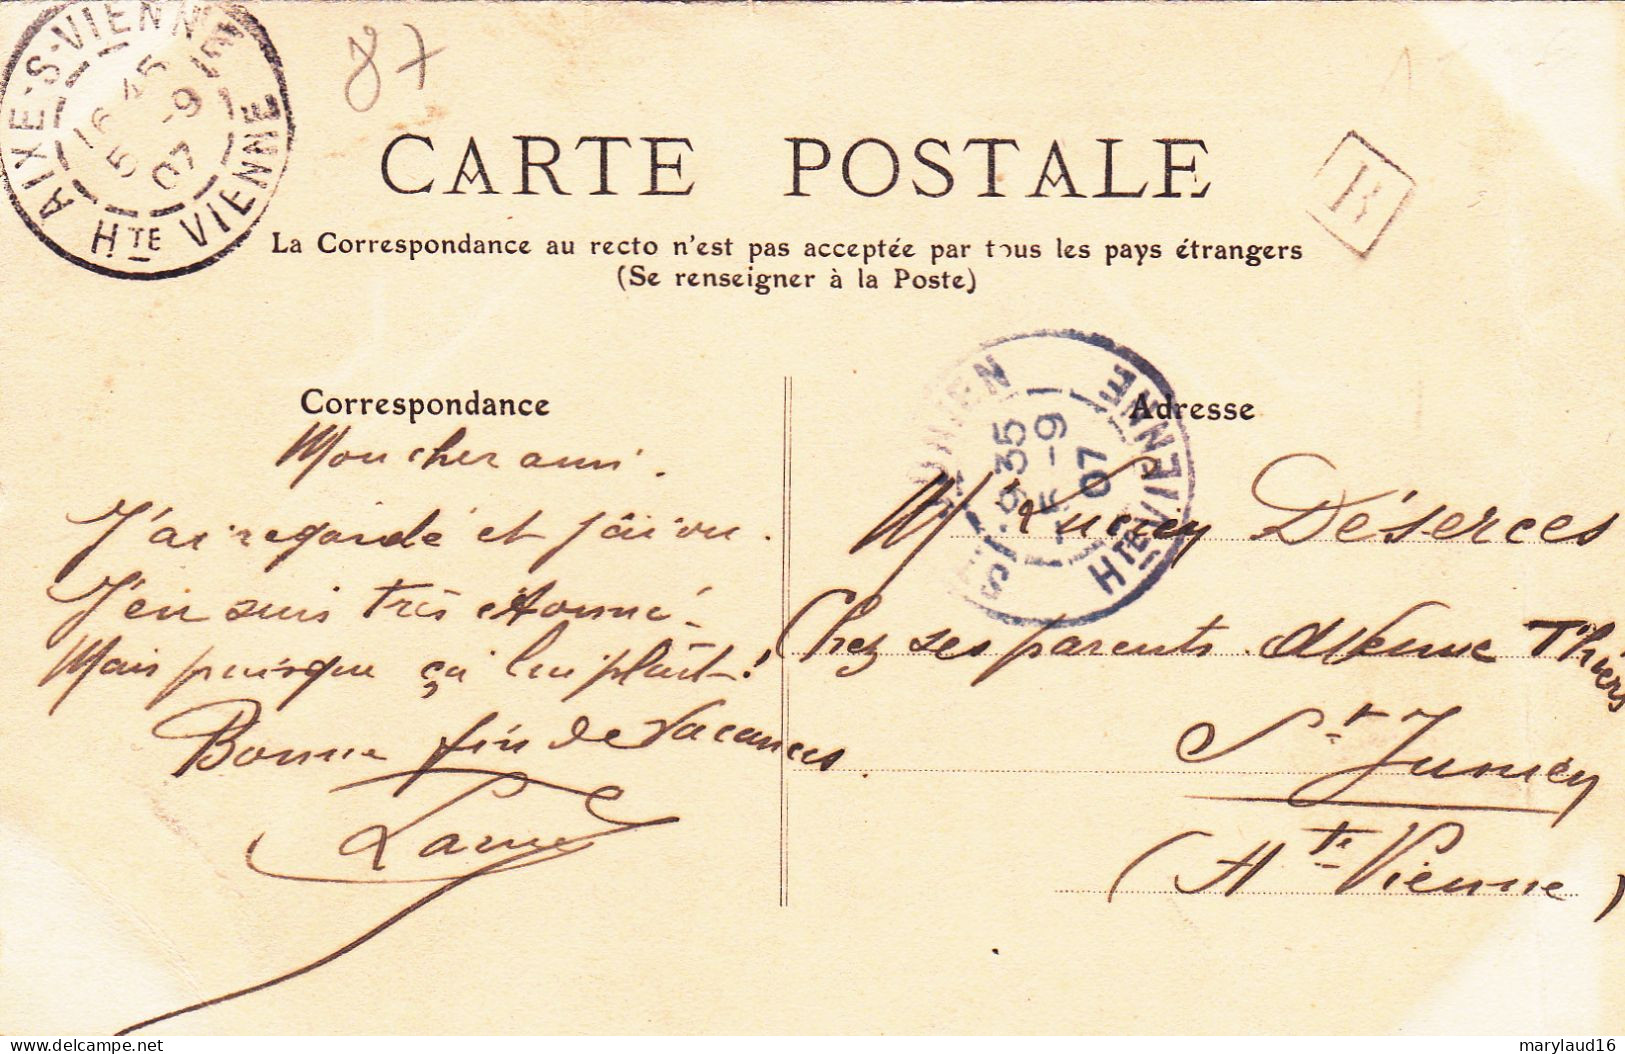 AIXE-S-VIENNE
16 45
5 -9
07
HTE VIENNE
87
CARTE POSTALE
B
La Correspondance au recto n'est pas acceptée par tous les pays étrangers
(Se renseigner à la Poste)
Correspondance
Mon cher ami.
J'ai regardé et j'ai vu.
J'en suis très étonné.
Mais puisque ça lui plaît!
Bonne fin de vacances
ST JUNIEN
9 35
-9
07
HTE VIENNE
Adresse
M Déserces
Chez ses parents. Avenue Thiers
St Junien
(Hte Vienne)
marylaud16